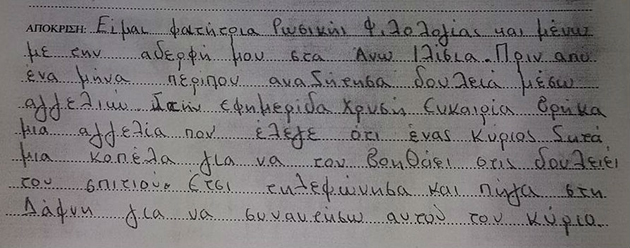 ΑΠΟΚΡΙΣΗ: Είμαι φοιτήτρια Ρωσικής Φιλολογίας και μένω
με την αδερφή μου στα Άνω Ιλίσια. Πριν από
ένα μήνα περίπου αναζήτησα δουλειά μέσω
αγγελιών στην εφημερίδα Χρυσή Ευκαιρία βρήκα
μια αγγελία που έλεγε ότι ένας κύριος ζητά
μια κοπέλα για να τον βοηθάει στις δουλειές
του σπιτιού. Έτσι τηλεφώνησα και πήγα στη
Δάφνη για να συναντήσω αυτού του κύριο.